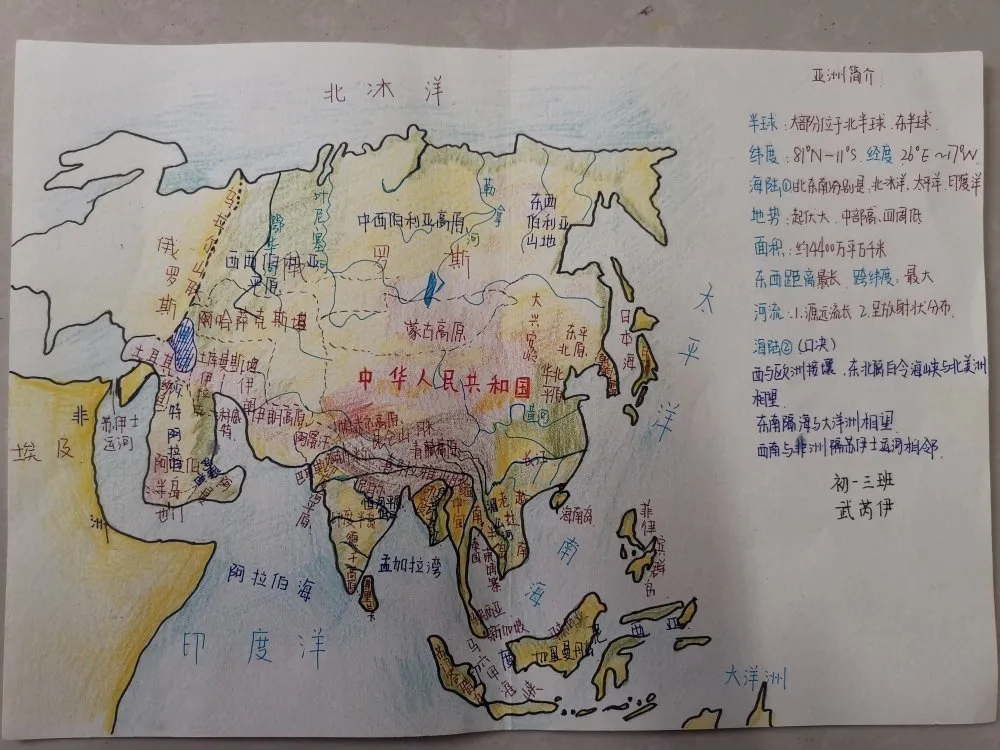 北冰洋
亚洲简介
半球：大部分位于北半球、东半球
纬度：81°N-11°S 经度 26°E～17°W
海陆①北东南分别是、北冰洋、太平洋、印度洋
地势：起伏大、中部高、四周低
面积：约4400万平方千米
东西距离最长 跨纬度：最大
河流：1.源远流长 2.呈放射状分布.
海陆②（口决）
西与欧洲接壤、东北隔白令海峡与北美洲
相望
东南隔海与大洋洲相望
西南与非洲隔苏伊士运河相邻.
初一三班
武芮伊
俄罗斯
俄罗斯
乌拉尔山脉
叶尼塞河
中西伯利亚高原
勒拿河
东西
伯利亚
山地
西西伯利亚
平原
哈萨克斯坦
蒙古高原
大兴安岭
东北平原
日本海
太平洋
中华人民共和国
华北平原
黄河
长江
土耳其
土库曼斯坦
伊朗
伊朗高原
帕米尔高原
昆仑山脉
青藏高原
非洲
埃及
苏伊士
运河
阿拉伯
半岛
也门
恒河平原
印度半岛
德干高原
孟加拉湾
老挝
越南
柬埔寨
海南岛
南海
菲律宾群岛
阿拉伯海
印度洋
新加坡
马六甲海峡
加里曼丹
印度尼西亚
大洋洲